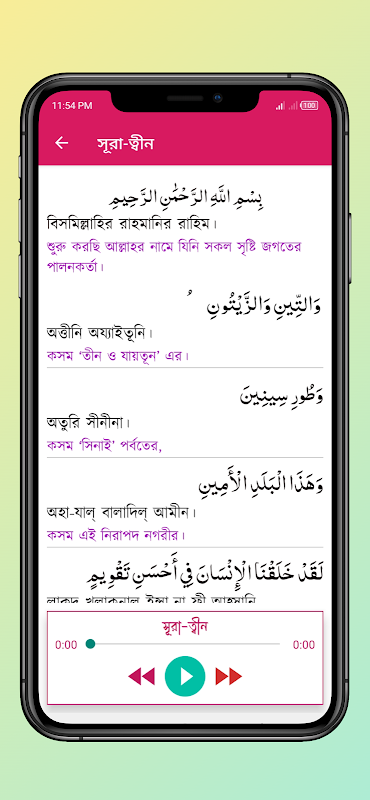 11:54 PM
100
সূরা-ত্বীন
بِسْمِ اللَّهِ الرَّحْمَٰنِ الرَّحِيمِ
বিসমিল্লাহির রাহমানির রাহিম।
শুরু করছি আল্লাহর নামে যিনি সকল সৃষ্টি জগতের
পালনকর্তা।
وَالتِّينِ وَالزَّيْتُونِ
অত্তীনি অয্যাইতূনি।
কসম ‘তীন ও যায়তূন’ এর।
وَطُورِ سِينِينَ
অতুরি সীনীনা।
কসম ‘সিনাই’ পর্বতের,
وَهَذَا الْبَلَدِ الْأَمِينِ
অহা-যাল্ বালাদিল্ আমীন।
কসম এই নিরাপদ নগরীর।
لَقَدْ خَلَقْنَا الْإِنْسَانَ فِي أَحْسَنِ تَقْوِيمٍ
লাকদ খলাকনাল ইন্সা না ফী আহসানি
সূরা-ত্বীন
0:00 0:00